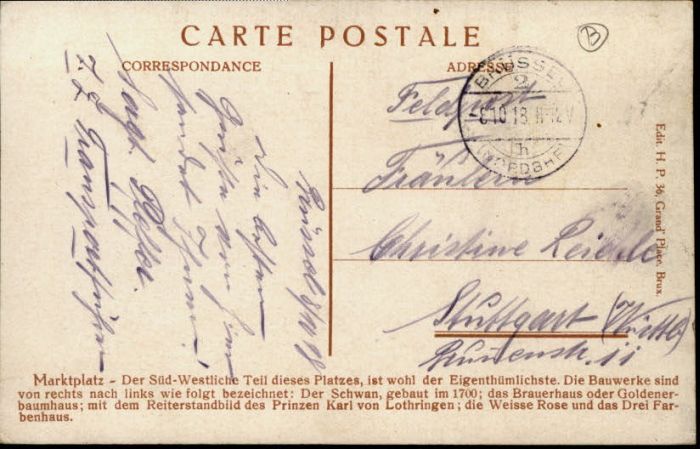 CARTE POSTALE
CORRESPONDANCE
ADRESSE
B
BRÜSSEL
2
10 18 11-12V
(NORDBHF)
h
Feldpost
Fräulein
Christine
Stuttgart (Württbg)
11
Brüssel 8/10 18
Die besten
Grüße von hier
sendet Ihnen
Sergt.
z. Z. Transportführer
Edit. H. P. 36, Grand' Place, Brux.
Marktplatz - Der Süd-Westliche Teil dieses Platzes, ist wohl der Eigenthümlichste. Die Bauwerke sind
von rechts nach links wie folgt bezeichnet: Der Schwan, gebaut im 1700; das Brauerhaus oder Goldener-
baumhaus; mit dem Reiterstandbild des Prinzen Karl von Lothringen; die Weisse Rose und das Drei Far-
benhaus.